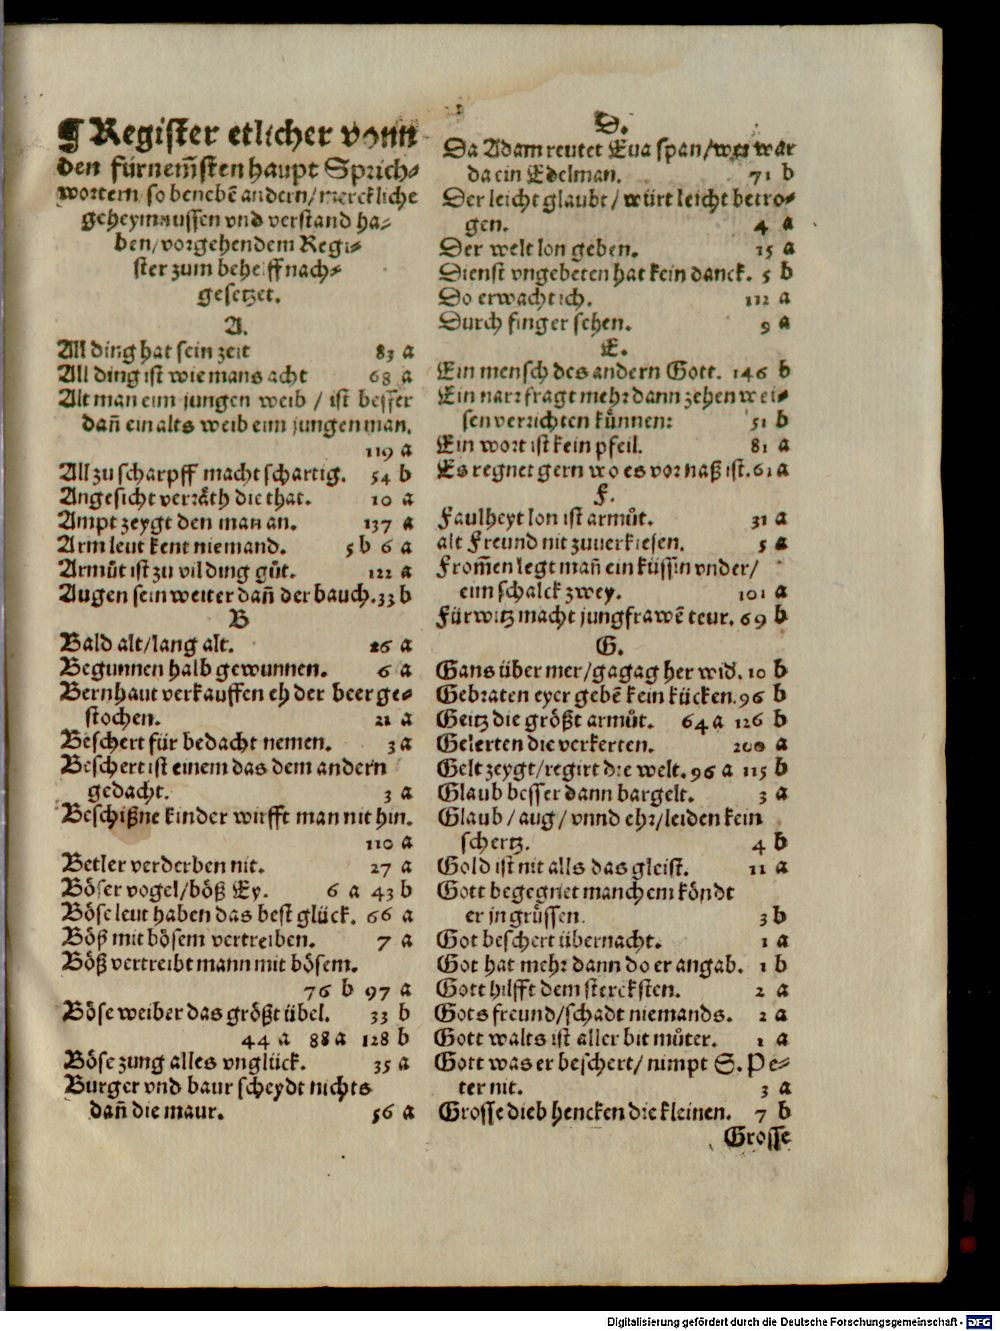 ¶ Register etlicher vonn
den fürnem̃sten haupt Sprich⸗
wortern so benebẽ andern/merckliche
geheymnussen vnd verstand ha⸗
ben/vorgehendem Regi⸗
ster zum behelff nach⸗
gesetzet.
A.
All ding hat sein zeit 83 a
All ding ist wie mans acht 68 a
Alt man eim jungen weib / ist besser
dañ ein alts weib eim jungen man.
119 a
All zu scharpff macht schartig. 54 b
Angesicht verräth die that. 10 a
Ampt zeygt den man an. 137 a
Arm leut kent niemand. 5 b 6 a
Armůt ist zu vil ding gůt. 122 a
Augen sein weiter dañ der bauch. 33 b
B
Bald alt/lang alt. 26 a
Begunnen halb gewunnen. 6 a
Bernhaut verkauffen eh der beer ge⸗
stochen. 21 a
Beschert für bedacht nemen. 3 a
Beschert ist einem das dem andern
gedacht. 3 a
Beschißne kinder wirfft man nit hin.
110 a
Betler verderben nit. 27 a
Böser vogel/böß Ey. 6 a 43 b
Böse leut haben das best glück. 66 a
Böß mit bösem vertreiben. 7 a
Böß vertreibt mann mit bösem.
76 b 97 a
Böse weiber das größt übel. 33 b
44 a 88 a 128 b
Böse zung alles vnglück. 35 a
Burger vnd baur scheydt nichts
dañ die maur. 56 a
D.
Da Adam reutet Eua span/wer war
da ein Edelman. 71 b
Der leicht glaubt / würt leicht betro⸗
gen. 4 a
Der welt lon geben. 15 a
Dienst vngebeten hat kein danck. 5 b
Do erwacht ich. 112 a
Durch finger sehen. 9 a
E.
Ein mensch des andern Gott. 146 b
Ein narr fragt mehr dann zehen wei⸗
sen verrichten künnen: 51 b
Ein wort ist kein pfeil. 81 a
Es regnet gern wo es vor naß ist. 61 a
F.
Faulheyt lon ist armůt. 31 a
alt Freund nit zuuerkiesen. 5 a
From̃en legt mañ ein küssin vnder/
eim schalck zwey. 101 a
Fürwitz macht jungfrawẽ teur. 69 b
G.
Gans über mer/gagag her wid. 10 b
Gebraten eyer gebẽ kein kücken. 96 b
Geitz die größt armůt. 64 a 126 b
Gelerten die verkerten. 200 a
Gelt zeygt/regirt die welt. 96 a 115 b
Glaub besser dann bargelt. 3 a
Glaub / aug / vnnd ehr/leiden kein
schertz. 4 b
Gold ist nit alls das gleist. 11 a
Gott begegnet manchem köndt
er jn grüssen. 3 b
Got beschert übernacht. 1 a
Got hat mehr dann do er angab. 1 b
Gott hilfft dem stercksten. 2 a
Gots freund/schadt niemands. 2 a
Gott walts ist aller bit můter. 1 a
Gott was er beschert/ nimpt S. Pe⸗
ter nit. 3 a
Grosse dieb hencken die kleinen. 7 b
Grosse
Digitalisierung gefördert durch die Deutsche Forschungsgemeinschaft - DFG